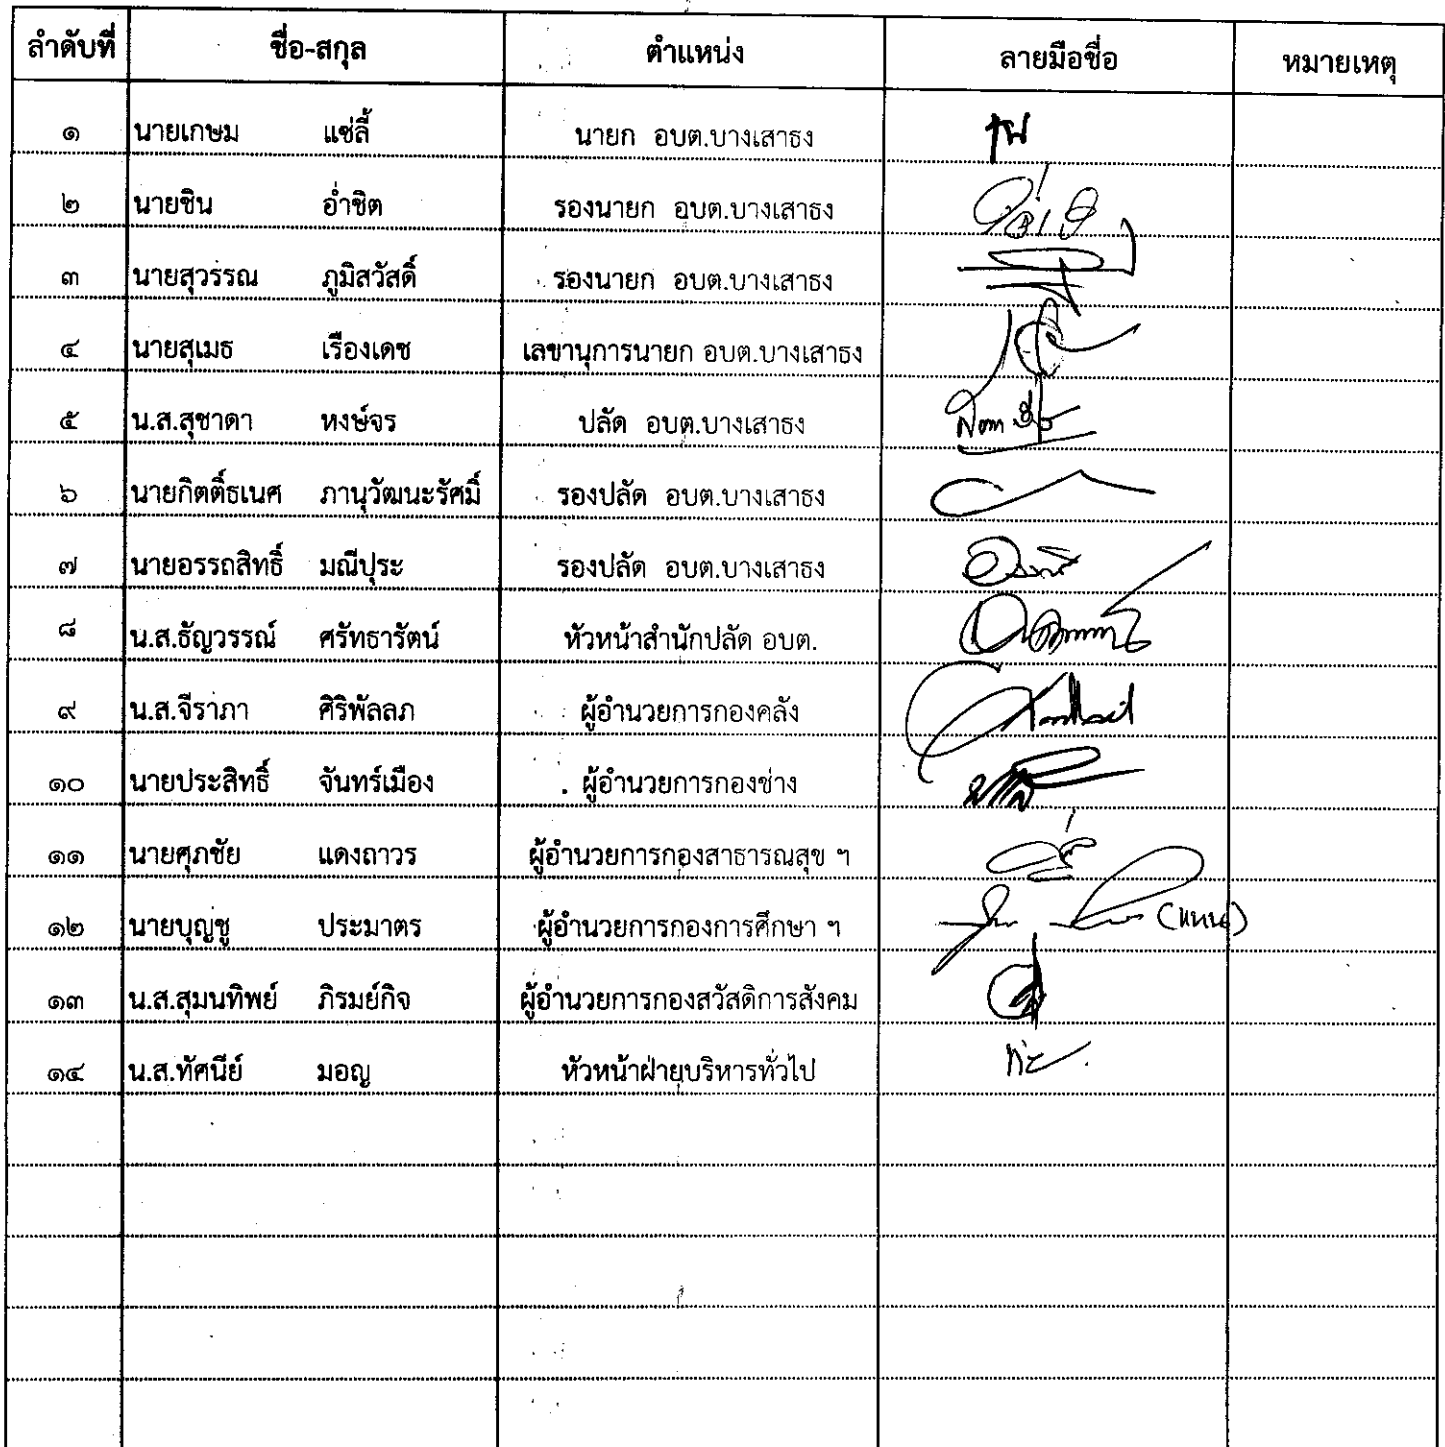 ลำดับที่ ชื่อ-สกุล ตำแหน่ง ลายมือชื่อ หมายเหตุ
๑ นายเกษม แซ่ลี้ นายก อบต.บางเสาธง
๒ นายชิน อ่ำชิต รองนายก อบต.บางเสาธง
๓ นายสุวรรณ ภูมิสวัสดิ์ รองนายก อบต.บางเสาธง
๔ นายสุเมธ เรืองเดช เลขานุการนายก อบต.บางเสาธง
๕ น.ส.สุชาดา หงษ์จร ปลัด อบต.บางเสาธง
๖ นายกิตติ์ธเนศ ภานุวัฒนะรัศมิ์ รองปลัด อบต.บางเสาธง
๗ นายอรรถสิทธิ์ มณีปุระ รองปลัด อบต.บางเสาธง
๘ น.ส.ธัญวรรณ์ ศรัทธารัตน์ หัวหน้าสำนักปลัด อบต.
๙ น.ส.จีราภา ศิริพัลลภ ผู้อำนวยการกองคลัง
๑๐ นายประสิทธิ์ จันทร์เมือง ผู้อำนวยการกองช่าง
๑๑ นายศุภชัย แดงถาวร ผู้อำนวยการกองสาธารณสุข ฯ
๑๒ นายบุญชู ประมาตร ผู้อำนวยการกองการศึกษา ฯ (แทน)
๑๓ น.ส.สุมนทิพย์ ภิรมย์กิจ ผู้อำนวยการกองสวัสดิการสังคม
๑๔ น.ส.ทัศนีย์ มอญ หัวหน้าฝ่ายบริหารทั่วไป